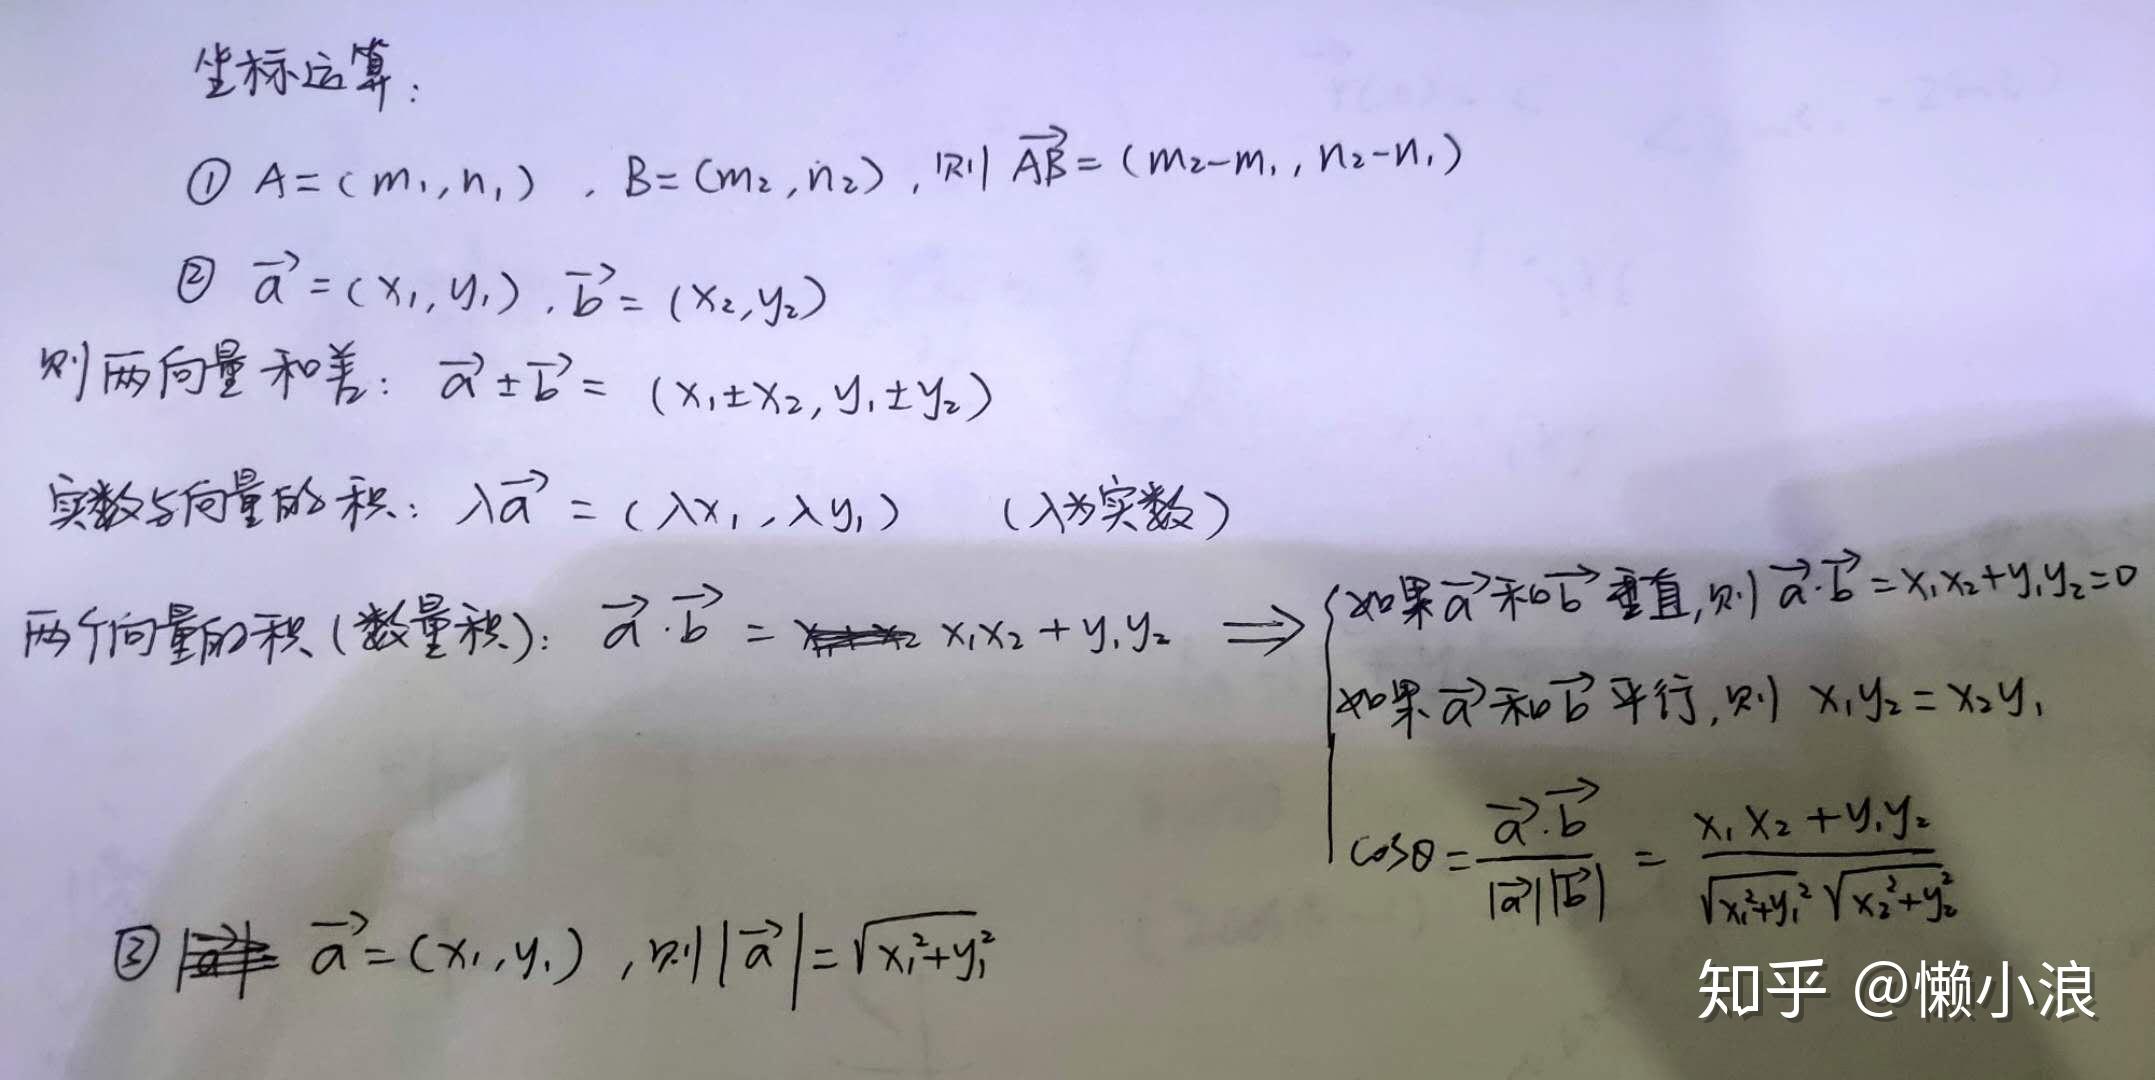 坐标运算：
① A=(m₁,n₁) , B=(m₂,n₂) , 则 \overrightarrow{AB}=(m₂-m₁, n₂-n₁)
② \vec{a}=(x₁,y₁), \vec{b}=(x₂,y₂)
则两向量和差： \vec{a}±\vec{b}=(x₁±x₂, y₁±y₂)
实数与向量的积： λ\vec{a}=(λx₁, λy₁) (λ为实数)
两个向量的积(数量积)： \vec{a}·\vec{b}= x₁x₂+y₁y₂ ⇒
如果\vec{a}和\vec{b}垂直,则\vec{a}·\vec{b}=x₁x₂+y₁y₂=0
如果\vec{a}和\vec{b}平行,则 x₁y₂=x₂y₁
cosθ=\frac{\vec{a}·\vec{b}}{|\vec{a}||\vec{b}|}=\frac{x₁x₂+y₁y₂}{\sqrt{x₁²+y₁²}\sqrt{x₂²+y₂²}}
③ \vec{a}=(x₁,y₁) , 则|\vec{a}|=\sqrt{x₁²+y₁²}
知乎 @懒小浪